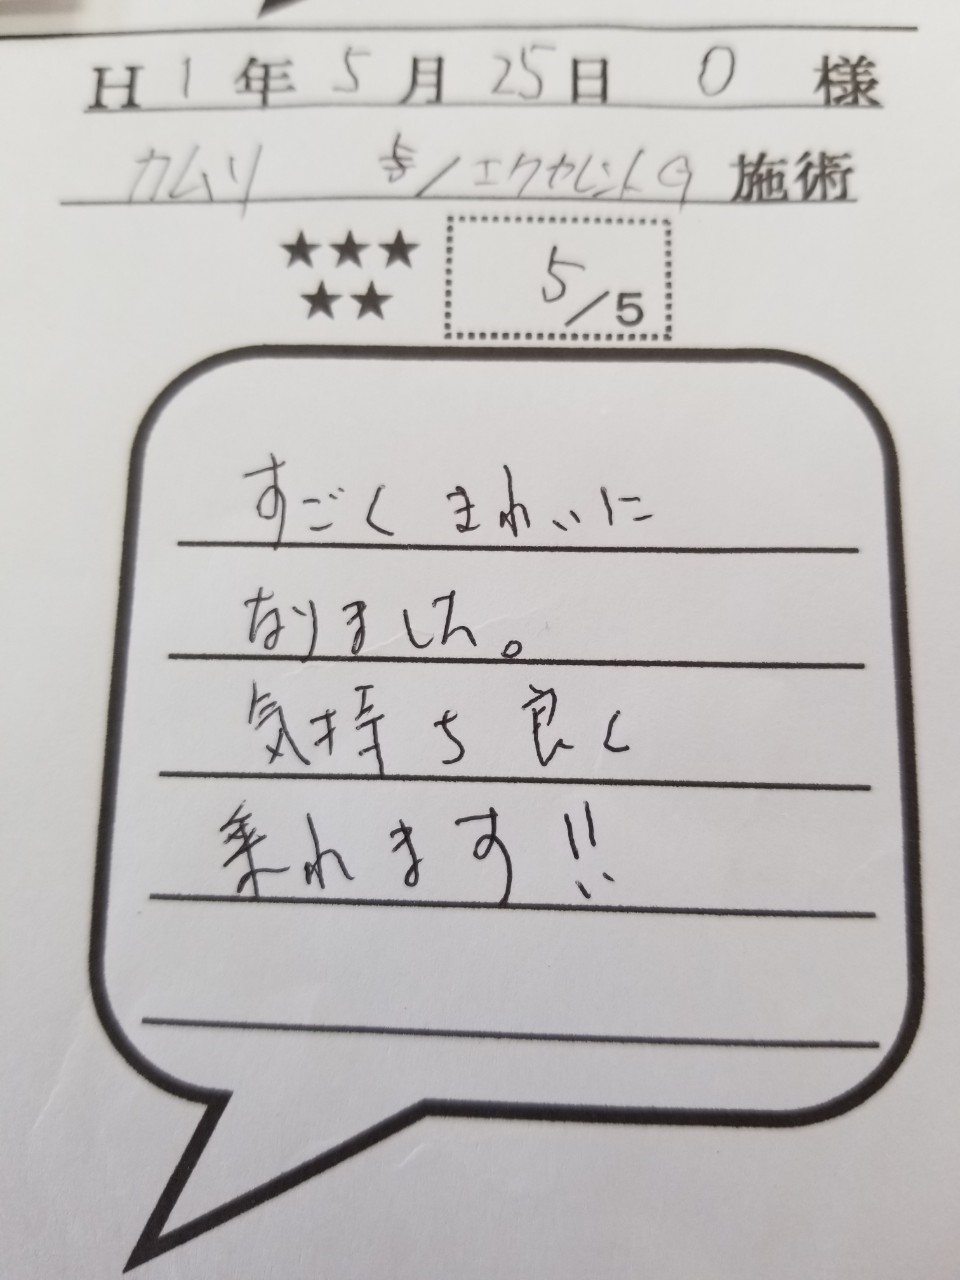 H 1 年 5 月 25 日 O 様
カムリ 歩/エクセレントG 施術
★★★
★★
5/5
すごくきれいに
なりました。
気持ち良く
乗れます!!